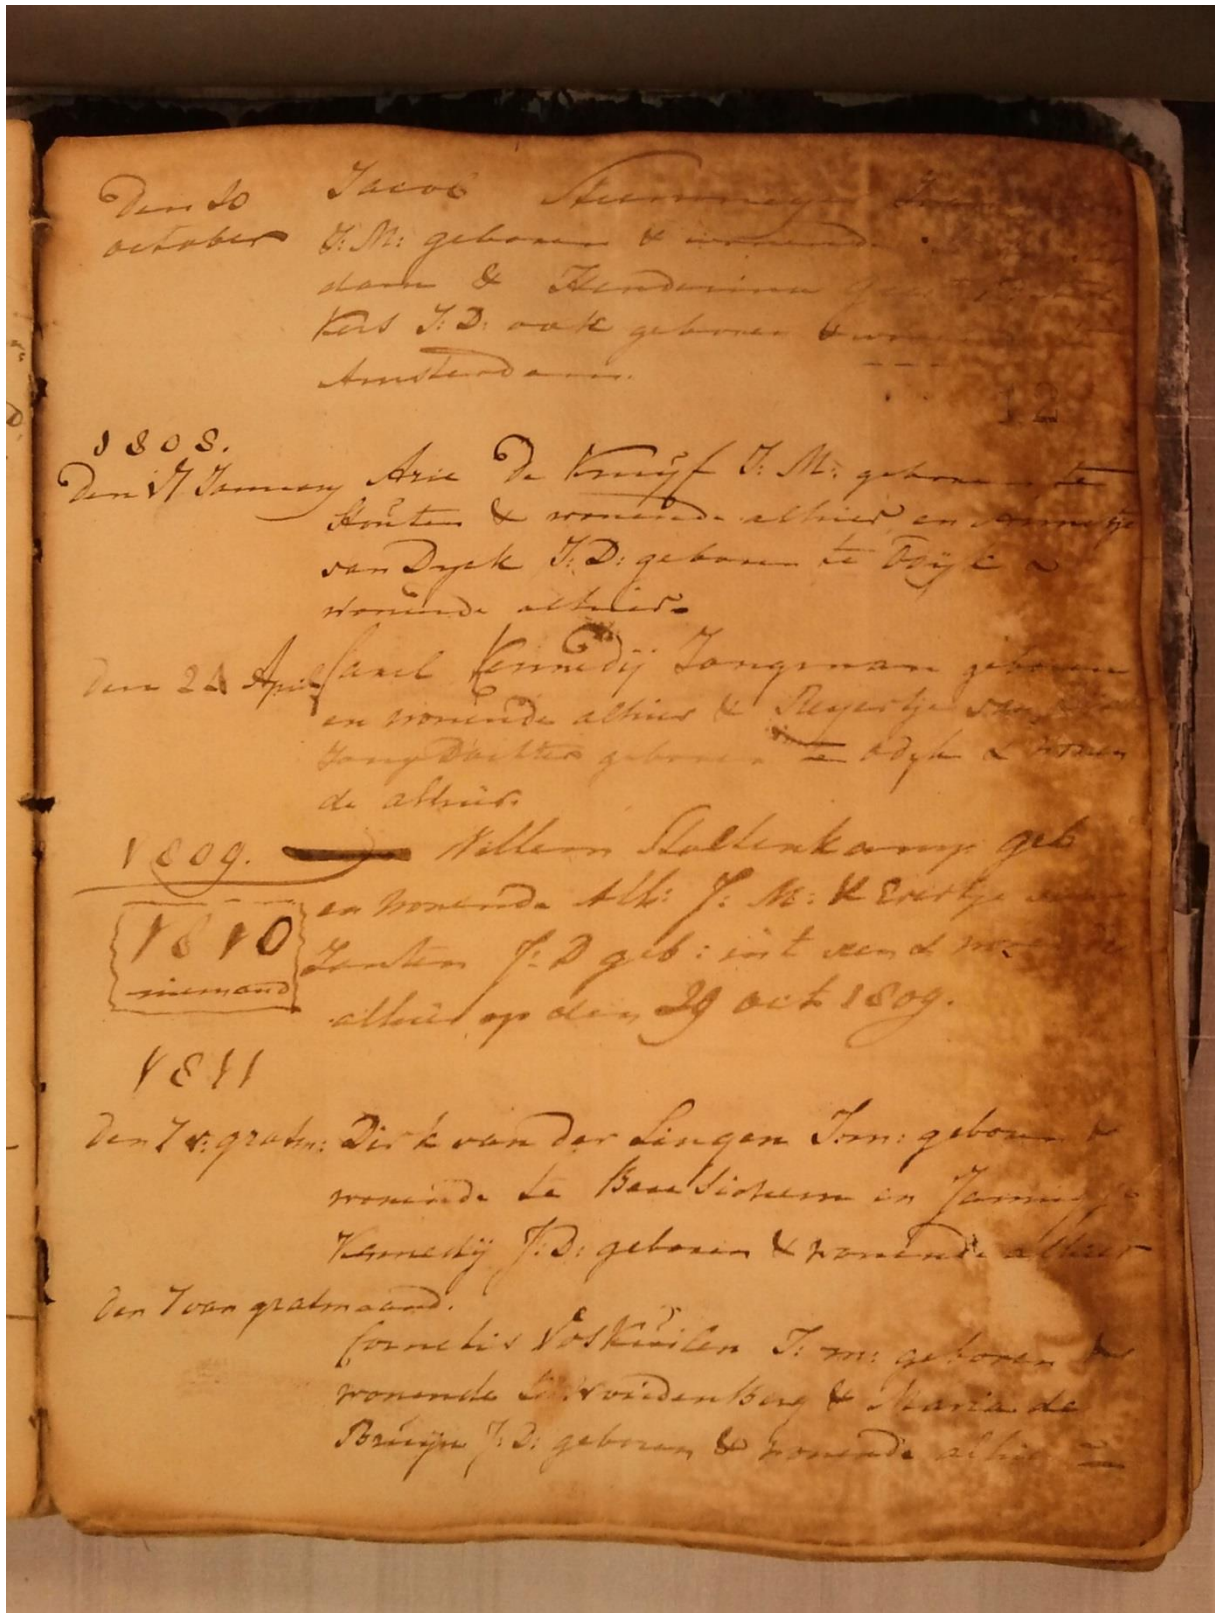 Den 10 Jacob
october J: M: geboren & wonende
dam & Henderina
Kers J: D: ook geboren &
Amsterdam.
12
1808.
Den 17 January Arie De Kruÿf J: M: geboren te
Houten & wonende alhier en Annetje
van Dyck J: D: geboren te &
wonende alhier.
den 24 April Carel Kennedij Jongman geboren
en wonende alhier & Reyertje
Jong Dochter geboren te Odyk & wonen
de alhier.
1809. Willem Stoltenkamp geb
en wonende Alh: J: M: & Evertje van
1810
Zanten J: D geb: int veen & wonende
niemand
alhier op den 29 oct 1809.
1811
den 7 v: grasm: Dirk van der Lingen J:m: geboren &
wonende te en Jannigje
Kennedÿ J: D: geboren & wonende alhier
den 7 van grasmaand.
Cornelis Voskuilen J: m: geboren &
wonende te Woudenberg & Maria de
Bruijn J: D: geboren & wonende alhier